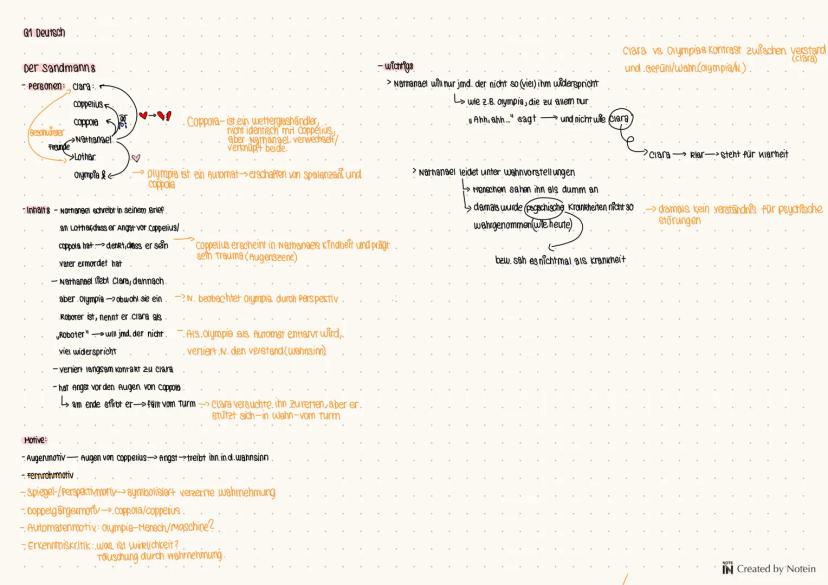 Q1 Deutsch
Der Sandmann:
- Personen:
Clara:
Coppelius
Coppola
Nathanael
Lothar
Olympia
Geschwister
Freunde
Coppola- ist ein Wetterglashändler,
nicht identisch mit Coppelius,
aber Nathanael verwechselt/
verknüpft beide.
→ Olympia ist ein Automat → erschaffen von Spalanzani und
Coppola
- Inhalt: - Nathanael schreibt in seinem Brief
an Lothar, dass er Angst vor Coppelius/
Coppola hat → denkt, dass er sein
Vater ermordet hat
→ Coppelius erscheint in Nathanaels Kindheit und prägt
sein Trauma (Augenszene)
- Nathanael liebt Clara, dannach
aber Olympia → obwohl sie ein
Roboter ist, nennt er Clara als
„Roboter" → will jmd. der nicht
viel widerspricht
→ N. beobachtet Olympia durch Perspektiv.
- Als Olympia als Automat entlarvt wird,
verliert N. den Verstand (Wahnsinn)
- verliert langsam Kontakt zu Clara
- hat Angst vor den Augen von Coppola
↳ am Ende stirbt er → fällt vom Turm
→ Clara versuchte ihn zu retten, aber er
stützt sich - in Wahn - vom Turm
Motive:
- Augenmotiv — Augen von Coppelius → Angst → treibt ihn in d. Wahnsinn
- Fernrohrmotiv
- Spiegel-/Perspektivmotiv → symbolisiert verzerrte Wahrnehmung
- Doppelgängermotiv → Coppola/Coppelius
- Automatenmotiv: Olympia-Mensch/Maschine?
- Erkenntniskritik: was ist Wirklichkeit?
Täuschung durch Wahrnehmung
Clara vs Olympia: Kontrast zwischen Verstand
(Clara)
und Gefühl/Wahn (Olympia/N.)
- Wichtig:
> Nathanael will nur jmd. der nicht so (viel) ihm widerspricht
↳ wie z.B. Olympia, die zu allem nur
„Ahh, ahh..." sagt → und nicht wie Clara
Clara → Klar → steht für Klarheit
> Nathanael leidet unter Wahnvorstellungen
↳ Menschen sahen ihn als dumm an
↳ damals wurde psychische Krankheiten nicht so
wahrgenommen (wie heute)
→ damals kein Verständnis für psychische
Störungen
bzw. sah es nichtmal als Krankheit
NOTE IN Created by Notein